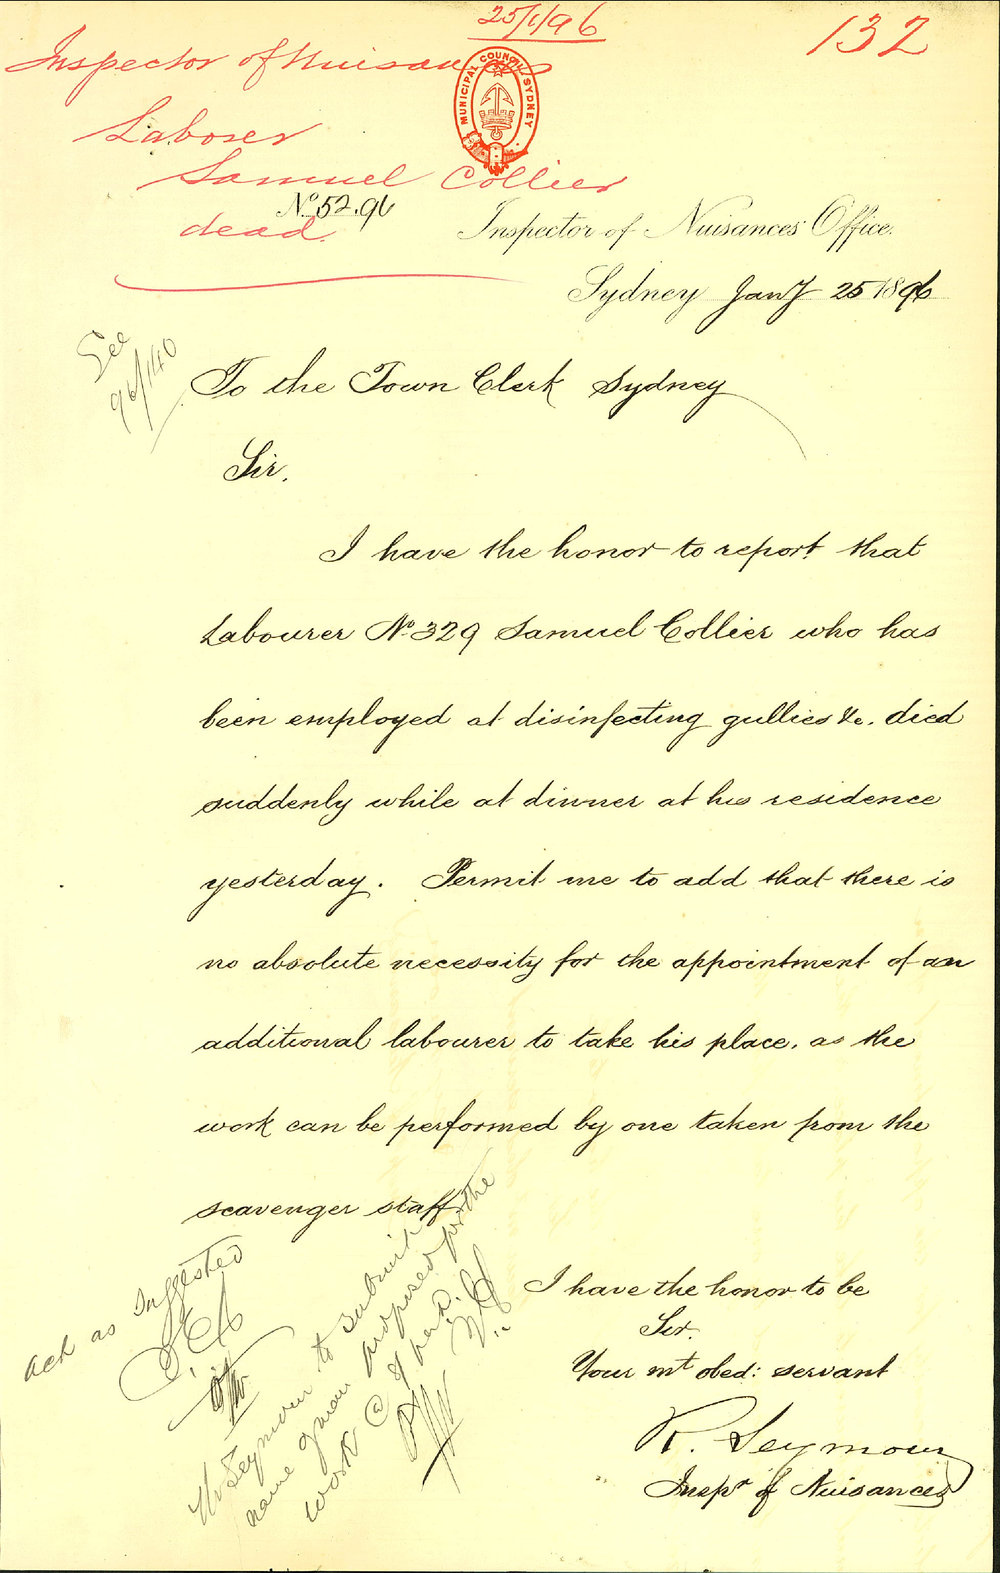 25/1/96
132
Inspector of Nuisances
MUNICIPAL COUNCIL SYDNEY
Laborer
Samuel Collier
dead.
No. 52.96
Inspector of Nuisances Office.
Sydney Jany 25 1896
See
96/140
To the Town Clerk Sydney
Sir,
I have the honor to report that
Labourer No. 329 Samuel Collier who has
been employed at disinfecting gullies &c. died
suddenly while at dinner at his residence
yesterday. Permit me to add that there is
no absolute necessity for the appointment of an
additional labourer to take his place, as the
work can be performed by one taken from the
scavenger staff.
I have the honor to be
Sir.
Your mt obed: servant
R. Seymour
Inspr of Nuisances
Act as suggested
Mr Seymour to submit
name of man proposed for the
work @ of